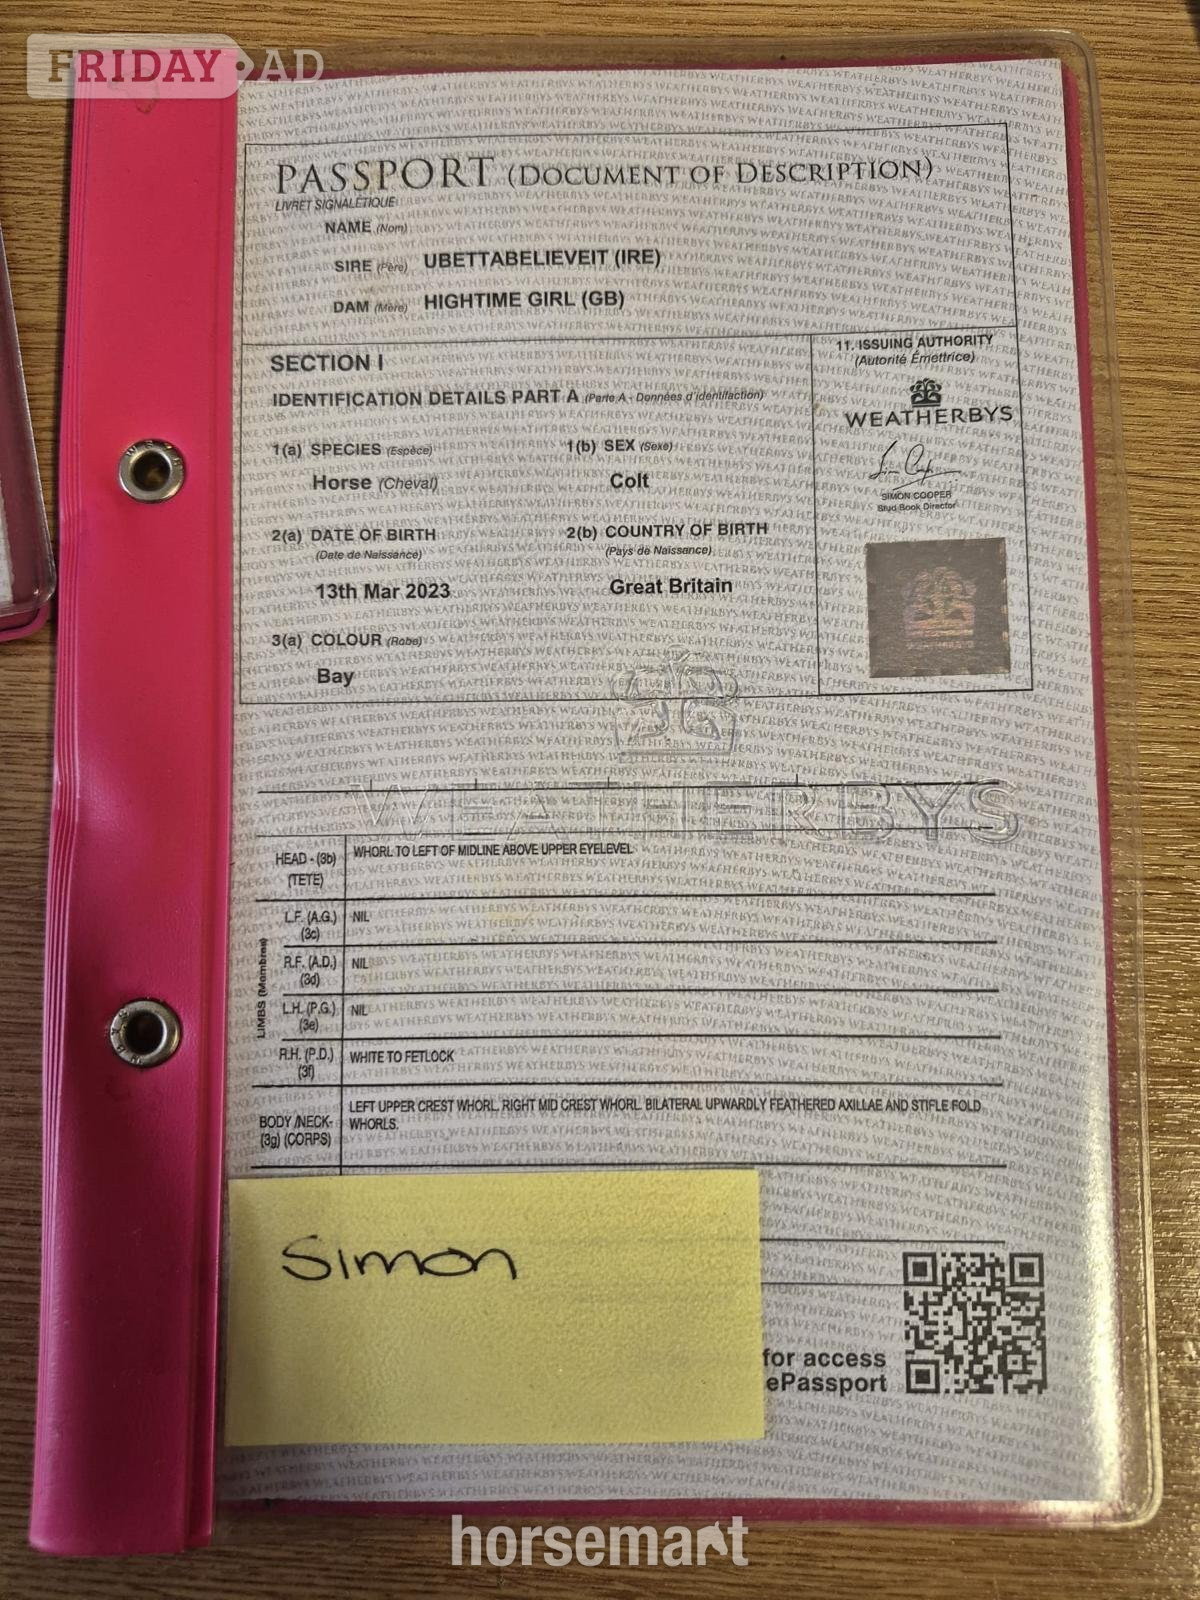 FRIDAY AD
PASSPORT (DOCUMENT OF DESCRIPTION)
LIVRET SIGNALÉTIQUE
NAME (Nom)
SIRE (Père) UBETTABELIEVEIT (IRE)
DAM (Mère) HIGHTIME GIRL (GB)
SECTION I
IDENTIFICATION DETAILS PART A (Partie A - Données d'identifaction)
1(a) SPECIES (Espèce)
Horse (Cheval)
1(b) SEX (Sexe)
Colt
2(a) DATE OF BIRTH
(Date de Naissance)
13th Mar 2023
2(b) COUNTRY OF BIRTH
(Pays de Naissance)
Great Britain
3(a) COLOUR (Robe)
Bay
11. ISSUING AUTHORITY
(Autorité Émettrice)
WEATHERBYS
SIMON COOPER
Stud Book Director
WEATHERBYS
WEATHERBYS
HEAD - (3b)
(TETE)
WHORL TO LEFT OF MIDLINE ABOVE UPPER EYELEVEL
LIMBS (Membres)
L.F. (A.G.)
(3c)
NIL
R.F. (A.D.)
(3d)
NIL
L.H. (P.G.)
(3e)
NIL
R.H. (P.D.)
(3f)
WHITE TO FETLOCK
BODY /NECK-
(3g) (CORPS)
LEFT UPPER CREST WHORL. RIGHT MID CREST WHORL. BILATERAL UPWARDLY FEATHERED AXILLAE AND STIFLE FOLD
WHORLS.
Simon
for access
ePassport
horsemart